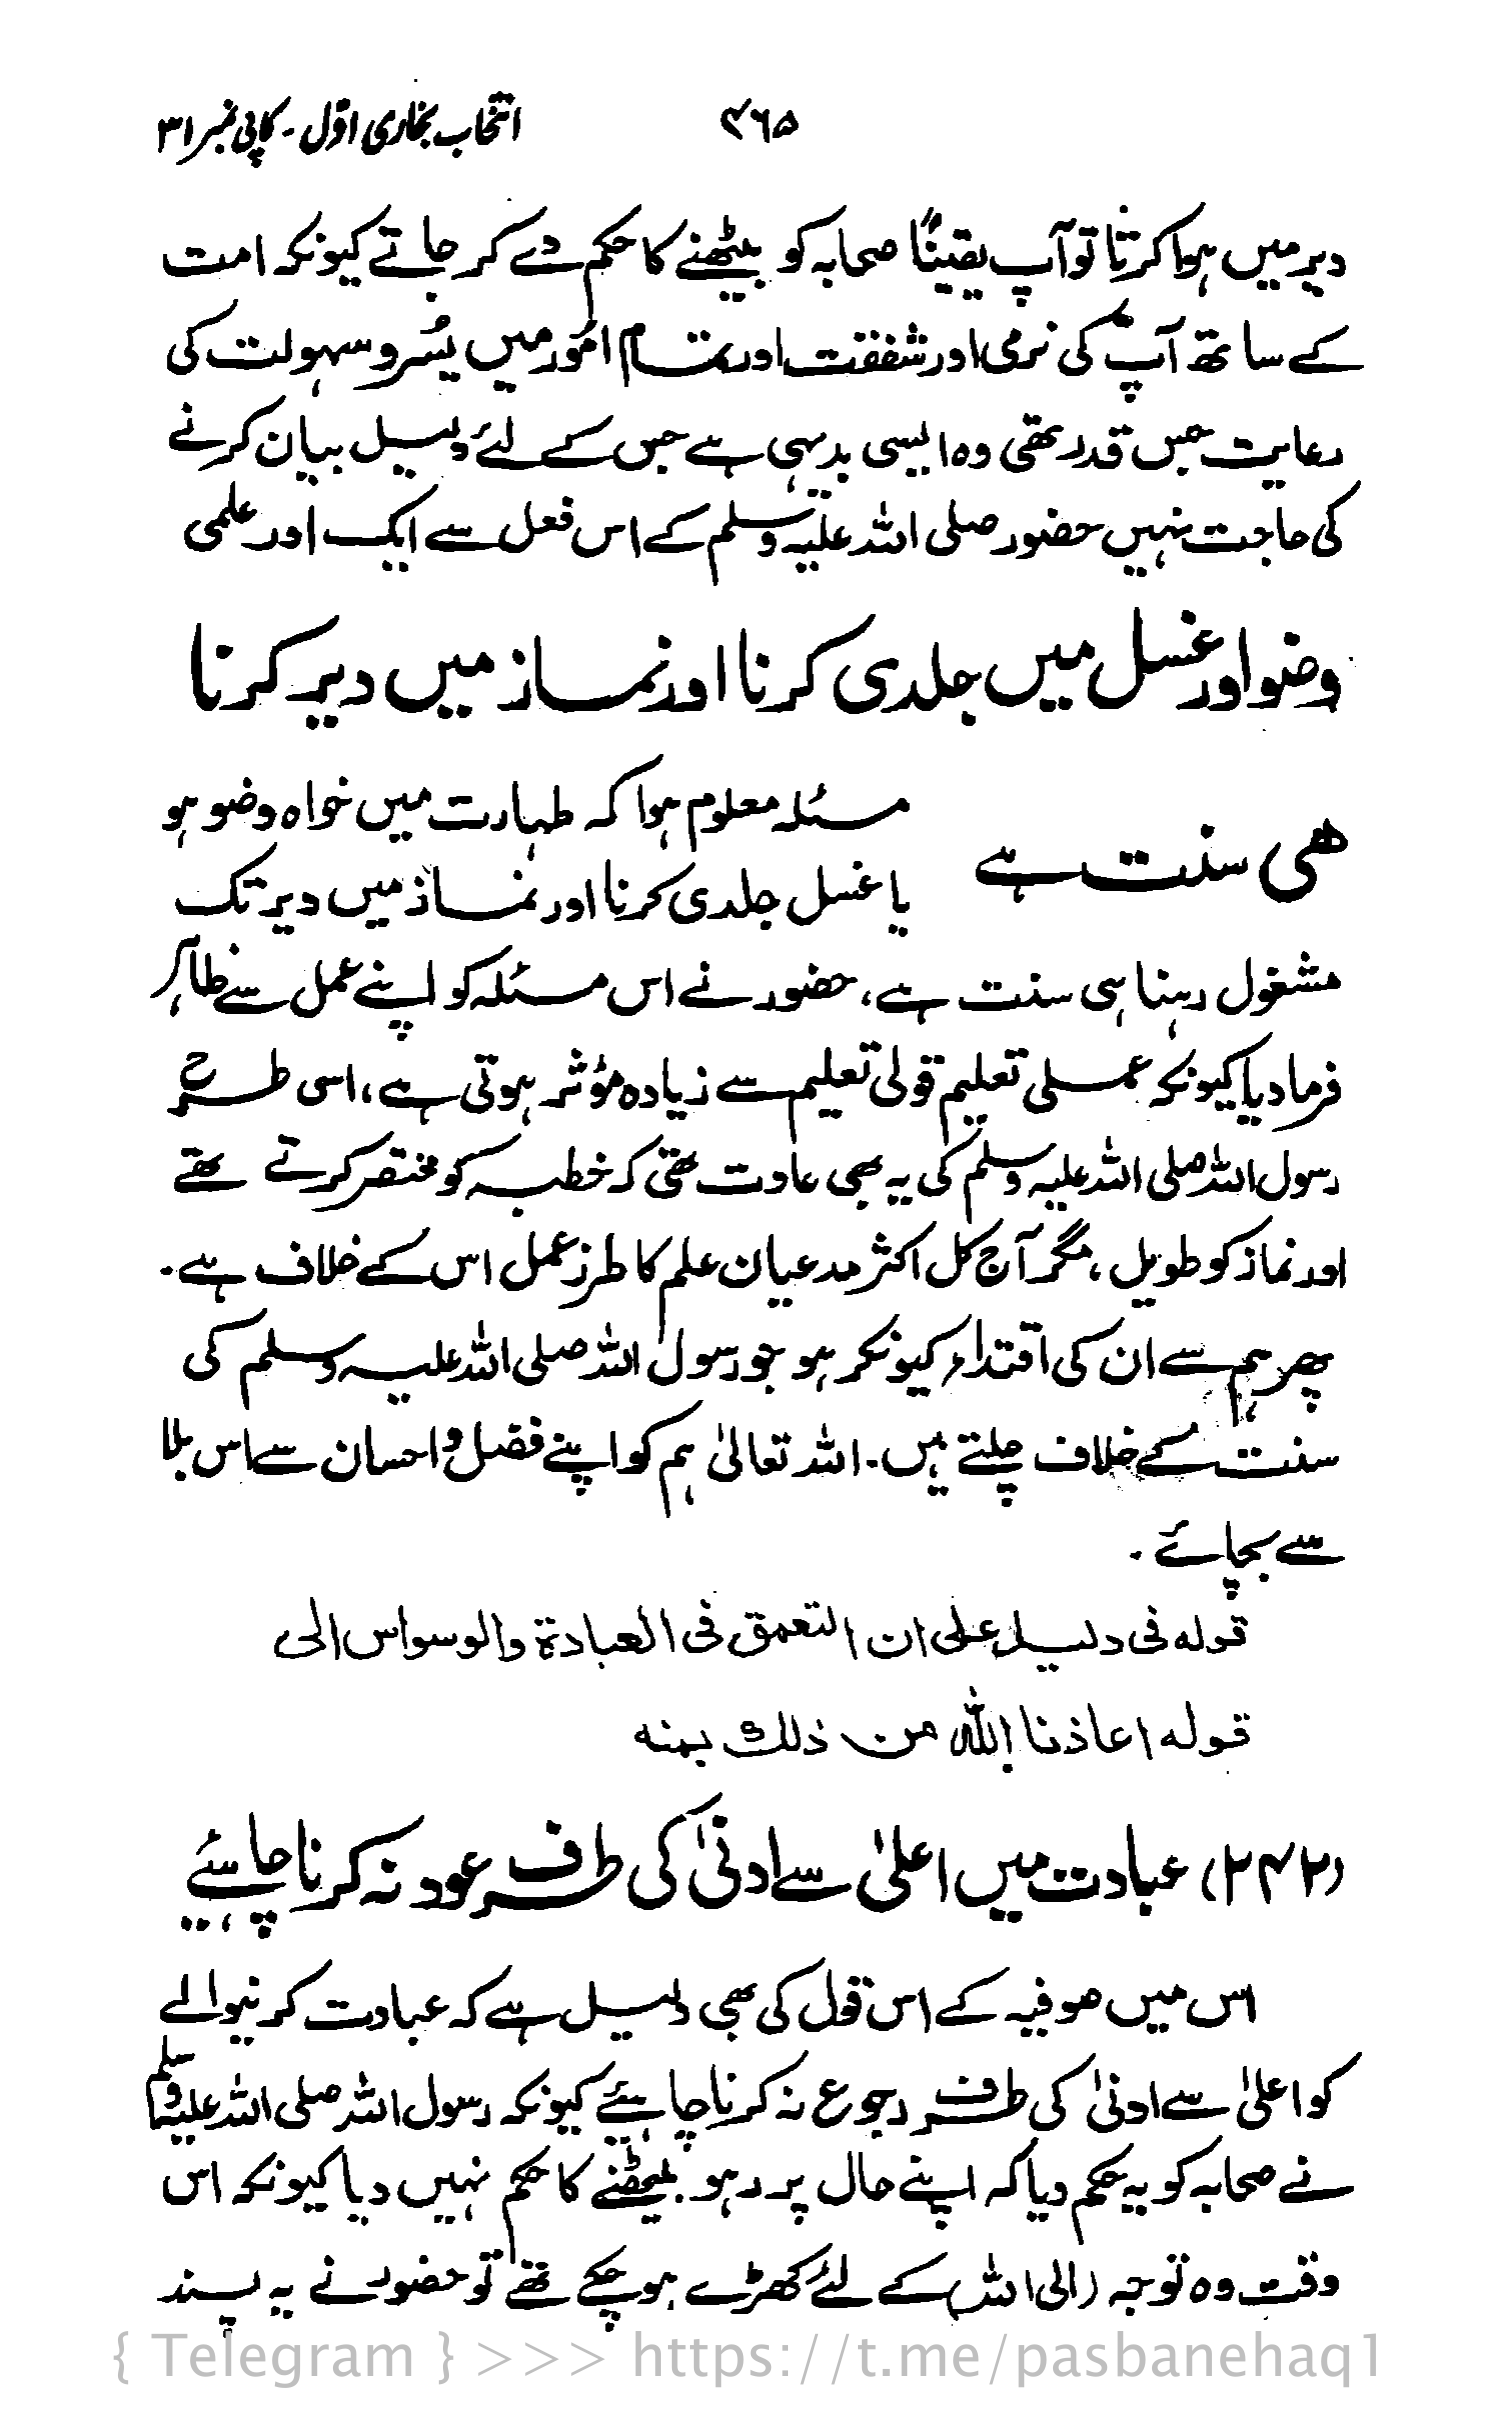 انتخاب بخاری اوّل - کاپی نمبر ۳۱
۴۶۵
دیر میں ہوا کرتا تو آپ یقینًا صحابہ کو بیٹھنے کا حکم دے کر جاتے کیونکہ امت
کے ساتھ آپؐ کی نرمی اور شفقت اور تمام امُور میں یُسر و سہولت کی
رعایت جس قدر تھی وہ ایسی بدیہی ہے جس کے لئے دلیل بیان کرنے
کی حاجت نہیں حضور صلی اللہ علیہ وسلم کے اس فعل سے ایک اور علمی
وضو اور غسل میں جلدی کرنا اور نماز میں دیر کرنا
ھی سنت ہے
مسئلہ معلوم ہوا کہ طہارت میں خواہ وضو ہو
یا غسل جلدی کرنا اور نماز میں دیر تک
مشغول رہنا ہی سنت ہے، حضور نے اس مسئلہ کو اپنے عمل سے ظاہر
فرما دیا کیونکہ عملی تعلیم قولی تعلیم سے زیادہ مؤثر ہوتی ہے، اسی طرح
رسول اللہ صلی اللہ علیہ وسلم کی یہ بھی عادت تھی کہ خطبہ کو مختصر کرتے تھے
اور نماز کو طویل، مگر آج کل اکثر مدعیان علم کا طرز عمل اس کے خلاف ہے۔
پھر ہم سے ان کی اقتداء کیونکر ہو جو رسول اللہ صلی اللہ علیہ وسلم کی
سنت کے خلاف چلتے ہیں۔ اللہ تعالیٰ ہم کو اپنے فضل و احسان سے اس بلا
سے بچائے۔
قوله فی دلیل علی ان التعمق فی العبادة والوسواس الی
قوله اعاذنا الله من ذلك بمنه
(۲۴۲) عبادت میں اعلیٰ سے ادنیٰ کی طرف عود نہ کرنا چاہیئے
اس میں صوفیہ کے اس قول کی بھی دلیل ہے کہ عبادت کرنیوالے
کو اعلیٰ سے ادنیٰ کی طرف رجوع نہ کرنا چاہیئے کیونکہ رسول اللہ صلی اللہ علیہ وسلم
نے صحابہ کو یہ حکم دیا کہ اپنے حال پر رہو۔ بیٹھنے کا حکم نہیں دیا کیونکہ اس
وقت وہ توجہ (الی اللہ) کے لئے کھڑے ہو چکے تھے تو حضور نے یہ پسند
{ Telegram } >>> https://t.me/pasbanehaq1